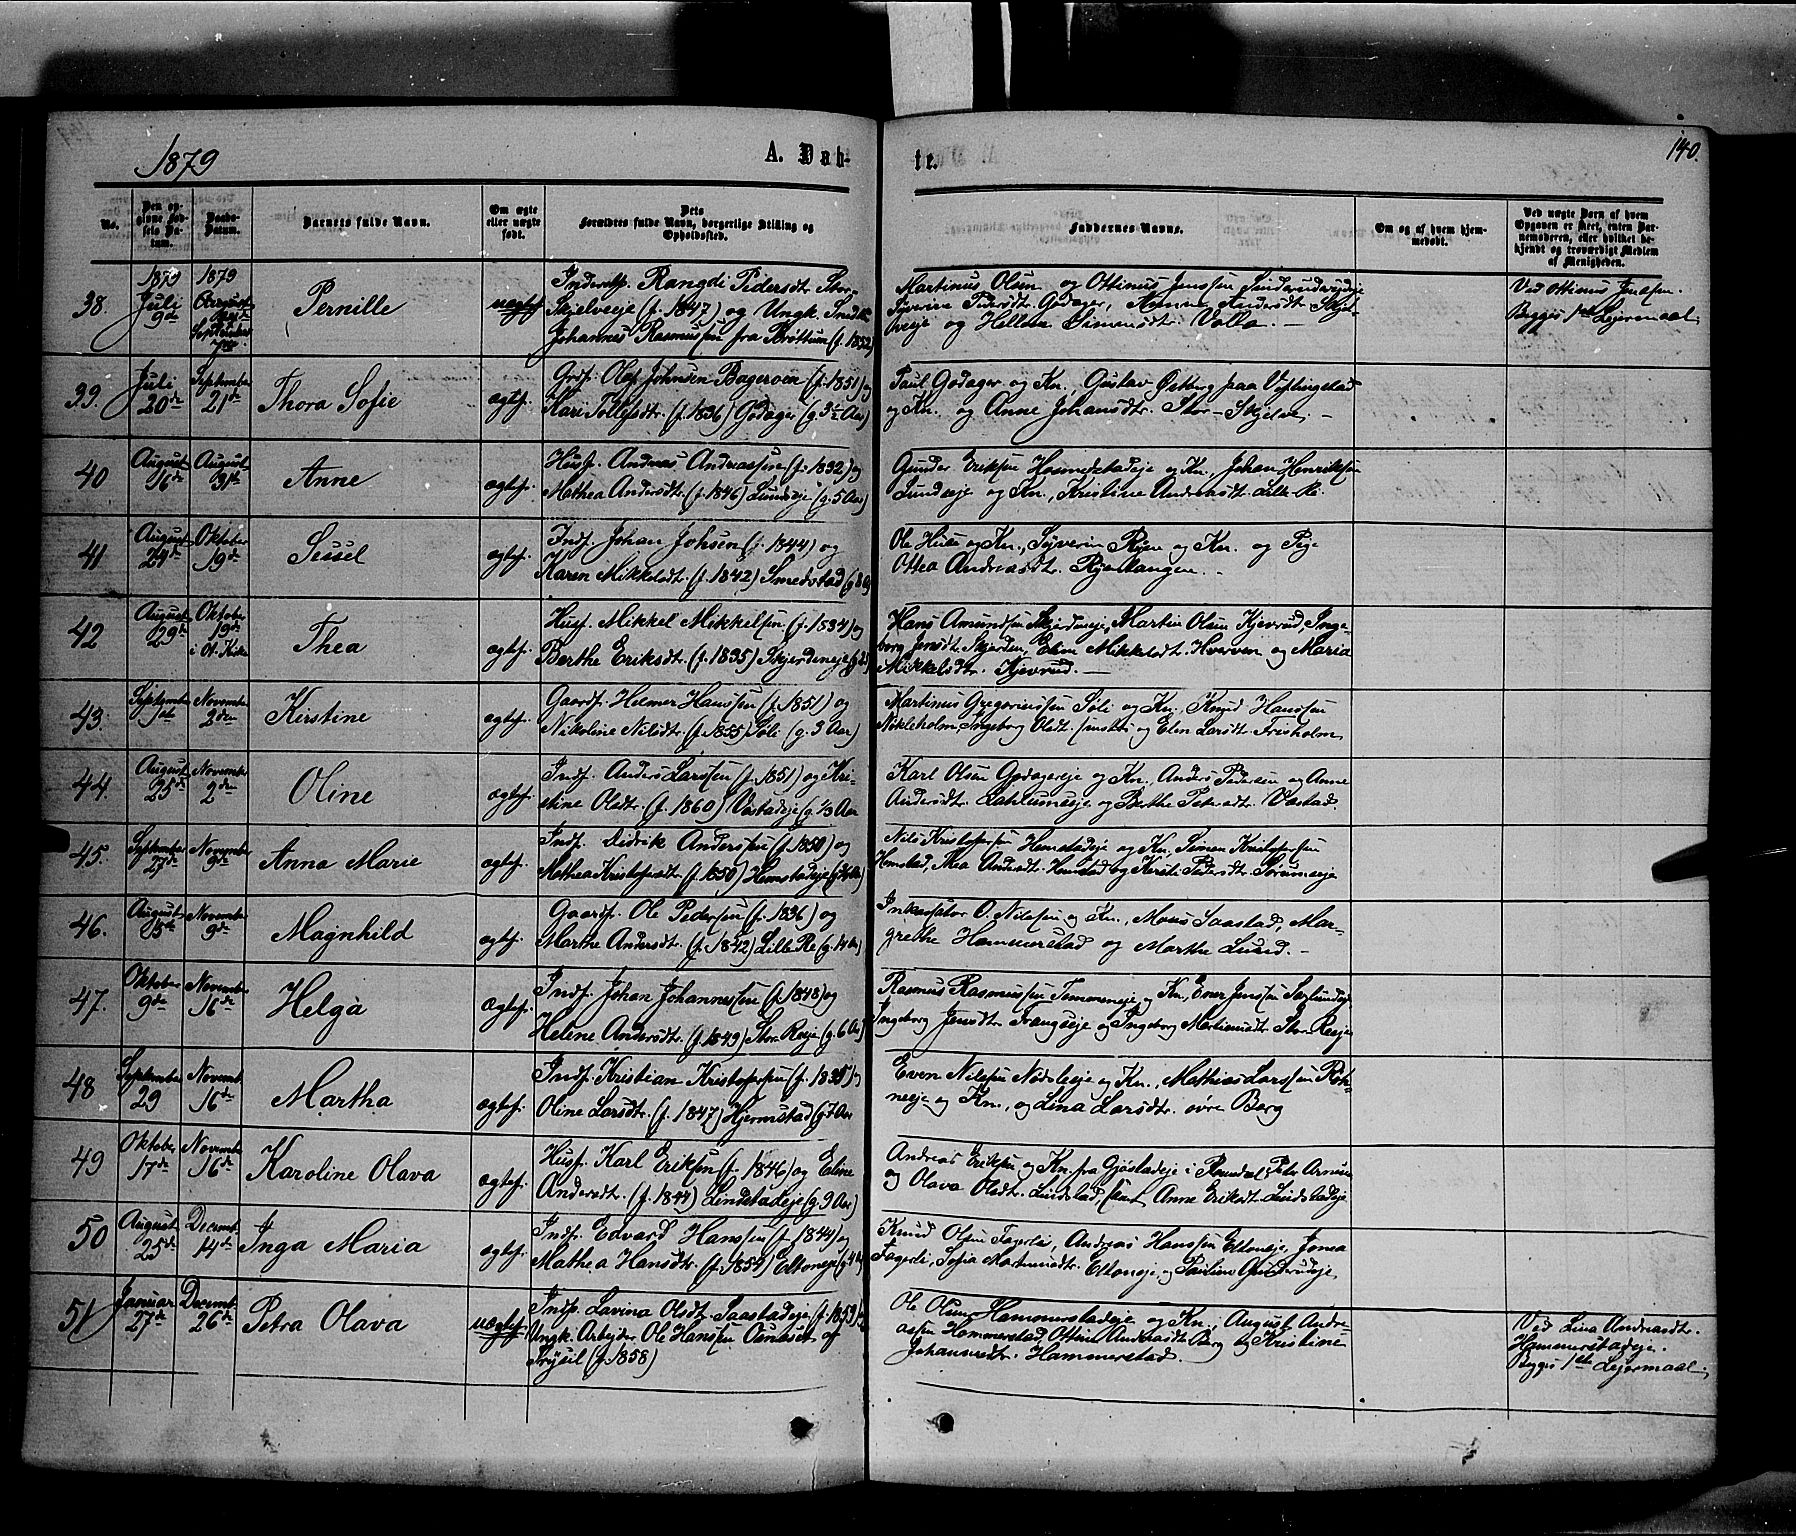 1879
A. Døb-
te.
140.
No.
Den opgivne Fødsels Datum.
Daabs-Datum.
Barnets fulde Navn.
Om ægte eller uægte født.
Dets Forældres fulde Navn, borgerlige Stilling og Opholdssted.
Faddernes Navne.
Om og af hvem hjemmedøbt.
Ved uægte Børn af hvem Opgaven er skeet, enten Barnemoderen, eller hvilket bekjendt og troværdigt Medlem af Menigheden.
38. 1879 Juli 9de
1879 August
September 7de
Pernille
uægtef.
Inderstp. Rangdi Pedersdtr. Stor-
Skjelveeje (f. 1847) og Ungk. Smed
Johannes Rasmussen fra Brøttum (f. 1852)
Martinus Olsen og Ottinus Jensen
Syverine Pedersdt. Godager, Anne Andersdt. Skjel-
veeje og Helene Simensdt. Volla.
Ved Ottinus Jensen.
Begges 1ste Lejermaal
39. Juli 20de
September 21de
Thora Sofie
ægtef.
Grdf. Ole Johnsen Bageroen (f. 1851) og
Kari Tollefsdtr. (f. 1836) Godager (g. 3½ Aar)
Paul Godager og Kn., Gustav Østberg paa Vestingstad
og Kn. og Anne Johansdtr. Stor-Skjelve.
40 August 16de
August 31te
Anne
ægtef.
Husf. Andreas Andreassen (f. 1832) og
Mathea Andersdtr. (f. 1846) Lundseje (g. 5 Aar)
Gunder Eriksen Hosmestadeje og Kn., Johan Henriksen
Lundseje og Kn., Kristine Andreasdt. Lille-Re.
41 August 24de
Oktober 19de
Sessel
ægtef.
Indf. Johan Johsen (f. 1844) og
Karen Mikkelsdt. (f. 1842) Smedstad (g. 8 Aar)
Ole Huse og Kn., Syverin Ryen og Kn. og Pige
Ottea Andreasdt. Ryeslangen.
42 August 29de
Oktober 19de
i Ot. Kirke
Thea
ægtef.
Husf. Mikkel Mikkelsen (f. 1834) og
Berthe Eriksdt. (f. 1835) Skjerdeneje
Hans Amundsen Skjerdeneje, Martin Olsen Kjevrud, Inge-
borg Jensdt. Skjerden, Eline Mikkelsdt. Hverven og Maria
Mikkelsdtr. Kjevrud.
43. September 1ste
November 2den
Kirstine
ægtef.
Gaardf. Helmer Hanssen (f. 1851) og
Nikoline Nilsdt. (f. 1855) Søli (g. 3 Aar)
Martinus Gregoriussen Søli og Kn., Knud Hanssen
Nökleholm, Ingeborg Olsdt. og Elen Larsdt. Frisholm
44. August 25de
November 2den
Oline
ægtef.
Indf. Anders Larssen (f. 1851) og Kri-
stine Olsdt. (f. 1860) Vastadeje (g. 1/3 Aar
Karl Olsen Godagereje og Kn., Anders Pedersen og Anne
Andersdt. og Berthe Pedersdt. Vastad.
45. September 27de
November 9de
Anna Marie
ægtef.
Indf. Didrik Anderssen (f. 1850) og
Mathea Kristofersdt. (f. 1850) Hemstadeje
Nils Kristoffersen Hemstadeje og Kn. Simen Kristoffersen
Hemstad, Thea Andersdt. Hemstad og Kersti Pedersdt. Sørumseje
46. August 15de
November 9de
Magnhild
ægtef.
Gaardf. Ole Pedersen (f. 1836) og
Marthe Andersdt. (f. 1842) Lille Re (g. 14 Aar)
Inkassator O. Nilssen og Kn., Moses Saastad, Mar-
grethe Hammerstad og Marthe Lund.
47. Oktober 9de
November 16de
Helga
ægtef.
Indf. Johan Johannessen (f. 1848) og
Helene Andersdt. (f. 1849) Stor Reeje (g. 6 Aar)
Rasmus Rasmussen Tommeneje og Kn., Ener Jenssen
Ingeborg Jensdtr. Frangseje og Ingeborg Martinusdt. Stor Reeje
48 September 29
Novemb. 16de
Martha
ægtef.
Indf. Kristian Kristofersen (f. 1835) og
Oline Larsdt. (f. 1847) Hjermstad (g. 7 Aar
Even Nilssen Nødsleeje og Kn., Mathias Larssen Røh-
neeje og Kn., og Lina Larsdtr. øvre Berg
49 Oktober 17de
Novembe. 16de
Karoline Olava
ægtef.
Husf. Karl Eriksen (f. 1846) og Eline
Andersdt. (f. 1844) Lindstadeje (g. 9 Aar)
Andreas Eriksen og Kn. fra Gjøstadeje i Romedal, Peter Arnesen
og Olava Olsdt. Lindstad, Anne Eriksdt. Lindstadeje
50 August 25de
Decemb. 14de
Inga Maria
ægtef.
Indf. Edvard Hanssen (f. 1844) og
Mathea Hansdtr. (f. 1854) Eltoneje
Knud Olsen Fagerli, Andreas Hanssen Eltoneje, Jonea
Fagerli, Sofia Martinusdtr. Eltoneje og Pauline
51 Januar 27de
Decemb. 26de
Petra Olava
uægtef.
Indp. Lavina Olsdt. Saastadeje (f. 1853) og
Ungk. Arbejder Ole Hanssen af
Trysil (f. 1858)
Ole Olsen Hammerstadeje og Kn., August Andre-
assen Hammerstad, Ottine Andreasdt. Berg og Kristine
Johannesdtr. Hammerstad.
Ved Lina Andreasdt.
Hammerstadeje.
Begges 1ste Lejermaal